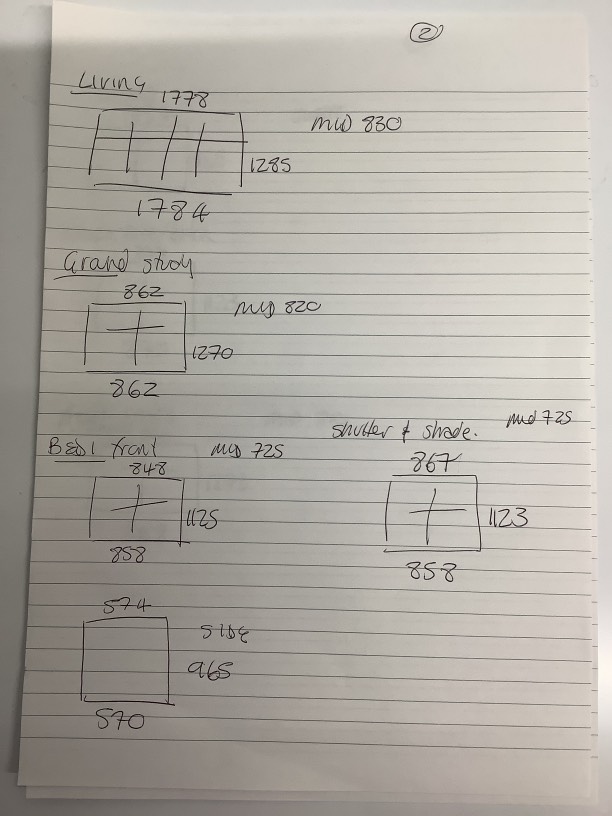 2
Living
1778
mid 830
1285
1784
Grand study
862
mid 820
1270
862
shutter & shade. mid 725
Bed 1 front mid 725
848
867
1125
1123
858
858
574
side
965
570